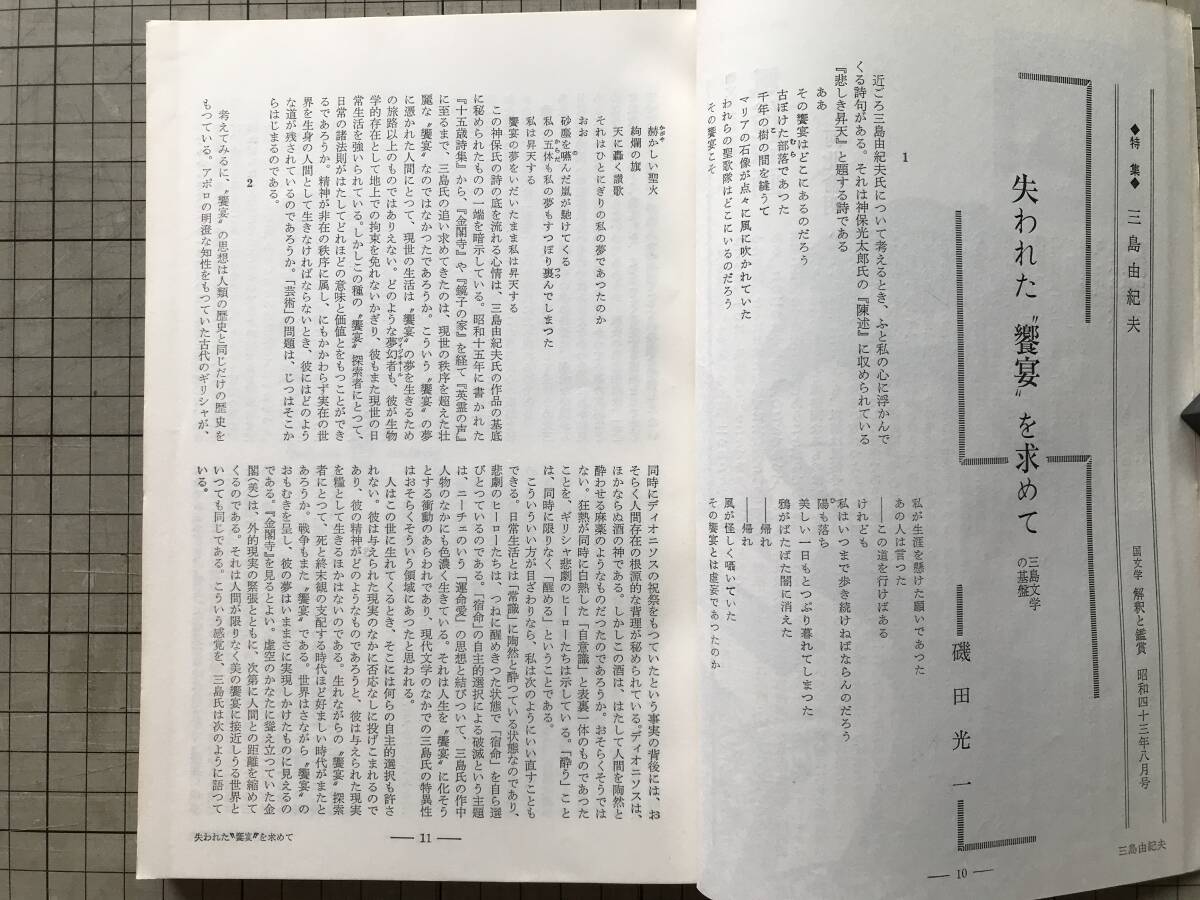 ◆特集◆ 三島由紀夫
国文学 解釈と鑑賞 昭和四十三年八月号
失われた〝饗宴〟を求めて
三島文学
の基盤
磯田光一
1
近ごろ三島由紀夫氏について考えるとき、ふと私の心に浮かんで
くる詩句がある。それは神保光太郎氏の『陳述』に収められている
『悲しき昇天』と題する詩である
ああ
その饗宴はどこにあるのだろう
古ぼけた部落であつた
千年の樹の間を縫うて
マリアの石像が点々に風に吹かれていた
われらの聖歌隊はどこにいるのだろう
その饗宴こそ
私が生涯を懸けた願いであつた
あの人は言つた
――この道を行けばある
けれども
私はいつまで歩き続けねばならんのだろう
陽も落ち
美しい一日もとつぷり暮れてしまつた
鴉がばたばた闇に消えた
――帰れ
――帰れ
風が怪しく囁いていた
その饗宴とは虚妄であつたのか
三島由紀夫
― 10 ―
赫かしい聖火
絢爛の旗
天に轟く讃歌
それはひとにぎりの私の夢であつたのか
おお
砂塵を嚥んだ嵐が馳けてくる
私の五体も私の夢もすつぽり裹んでしまつた
私は昇天する
饗宴の夢をいだいたまま私は昇天する
この神保氏の詩の底を流れる心情は、三島由紀夫氏の作品の基底
に秘められたものの一端を暗示している。昭和十五年に書かれた
『十五歳詩集』から、『金閣寺』や『鏡子の家』を経て『英霊の声』
に至るまで、三島氏の追い求めてきたのは、現世の秩序を超えた壮
麗な〝饗宴〟なのではなかつたであろうか。こういう〝饗宴〟の夢
に憑かれた人間にとつて、現世の生活は〝饗宴〟の夢を生きるため
の旅路以上のものではありえない。どのような夢幻者も、彼が生物
学的存在として地上での拘束を免れないかぎり、彼もまた現世の日
常生活を強いられている。しかしこの種の〝饗宴〟探索者にとつて、
日常の諸法則がはたしてどれほどの意味と価値とをもつことができ
るであろうか。精神が非在の秩序に属し、にもかかわらず実在の世
界を生身の人間として生きなければならないとき、彼にはどのよう
な道が残されているのであろうか。「芸術」の問題は、じつはそこか
らはじまるのである。
2
考えてみるに、〝饗宴〟の思想は人類の歴史と同じだけの歴史を
もつている。アポロの明澄な知性をもつていた古代のギリシャが、
同時にディオニソスの祝祭をもつていたという事実の背後には、お
そらく人間存在の根源的な背理が秘められている。ディオニソスは、
ほかならぬ酒の神である。しかしこの酒は、はたして人間を陶然と
酔わせる麻薬のようなものだつたのであろうか。おそらくそうでは
ない。狂熱が同時に白熱した「自意識」と表裏一体のものであつた
ことを、ギリシャ悲劇のヒーローたちは示している。「酔う」こと
は、同時に限りなく「醒める」ということである。
こういういい方が目ざわりなら、私は次のようにいい直すことも
できる。日常生活とは「常識」に陶然と酔つている状態なのであり、
悲劇のヒーローたちは、つねに醒めきつた状態で「宿命」を自ら選
びとつているのである。「宿命」の自主的選択による破滅という主題
は、ニーチェのいう「運命愛」の思想と結びついて、三島氏の作中
人物のなかにも色濃く生きている。それは人生を〝饗宴〟に化そう
とする衝動のあらわれであり、現代文学のなかでの三島氏の特異性
はおそらくそういう領域にあつたと思われる。
人はこの世に生れてくるとき、そこには何らの自主的選択も許さ
れない。彼は与えられた現実のなかに否応なしに投げこまれるので
あり、彼の精神がどのようなものであろうと、彼は与えられた現実
を糧として生きるほかはないのである。生れながらの〝饗宴〟探索
者にとつて、死と終末観の支配する時代ほど好ましい時代がまたと
あろうか。戦争もまた〝饗宴〟である。世界はさながら〝饗宴〟の
おもむきを呈し、彼の夢はいままさに実現しかけたものに見えるの
である。『金閣寺』を見るとよい。虚空のかなたに聳え立つていた金
閣（美）は、外的現実の緊張とともに、次第に人間との距離を縮めて
くるのである。それは人間が限りなく美の饗宴に接近しうる世界と
いつても同じである。こういう感覚を、三島氏は次のように語つて
いる。
― 11 ―
失われた〝饗宴〟を求めて